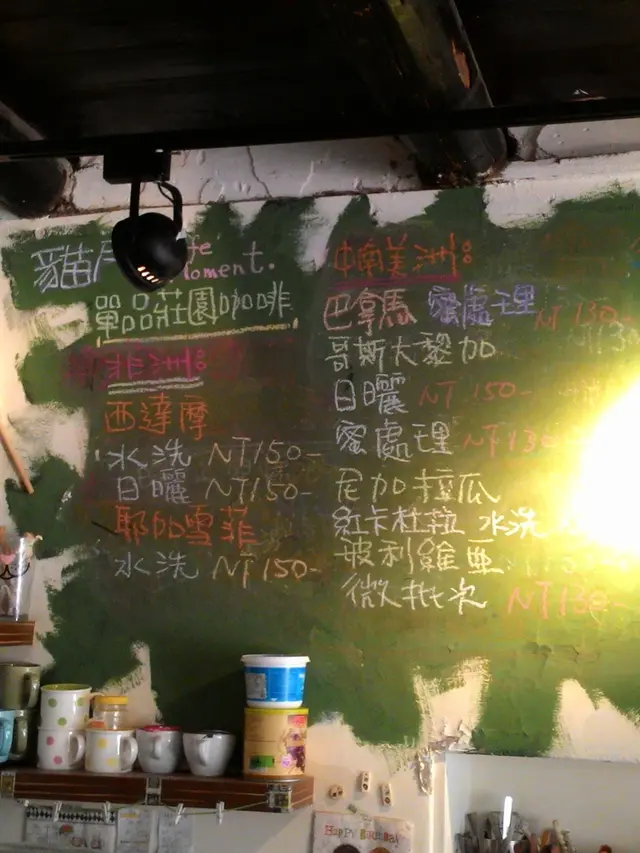 貓 Moment.
單品莊園咖啡
非洲
西達摩
水洗 NT150-
日曬 NT150-
耶加雪菲
水洗 NT150-
中南美洲
巴拿馬 蜜處理 NT 130-
哥斯大黎加
日曬 NT 150-
蜜處理 NT130
尼加拉瓜
紅卡杜拉 水洗
玻利維亞
微批次 NT130-
HAPPY